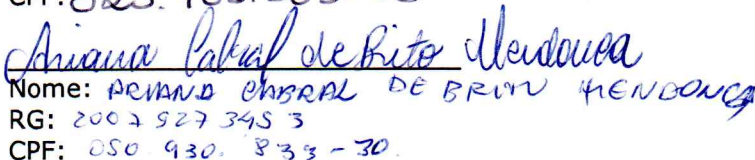 CPF:
Ariana Cabral de Brito Mendonça
Nome: ARIANA CABRAL DE BRITO MENDONÇA
RG: 2007 927 345 3
CPF: 050.930.833-30.